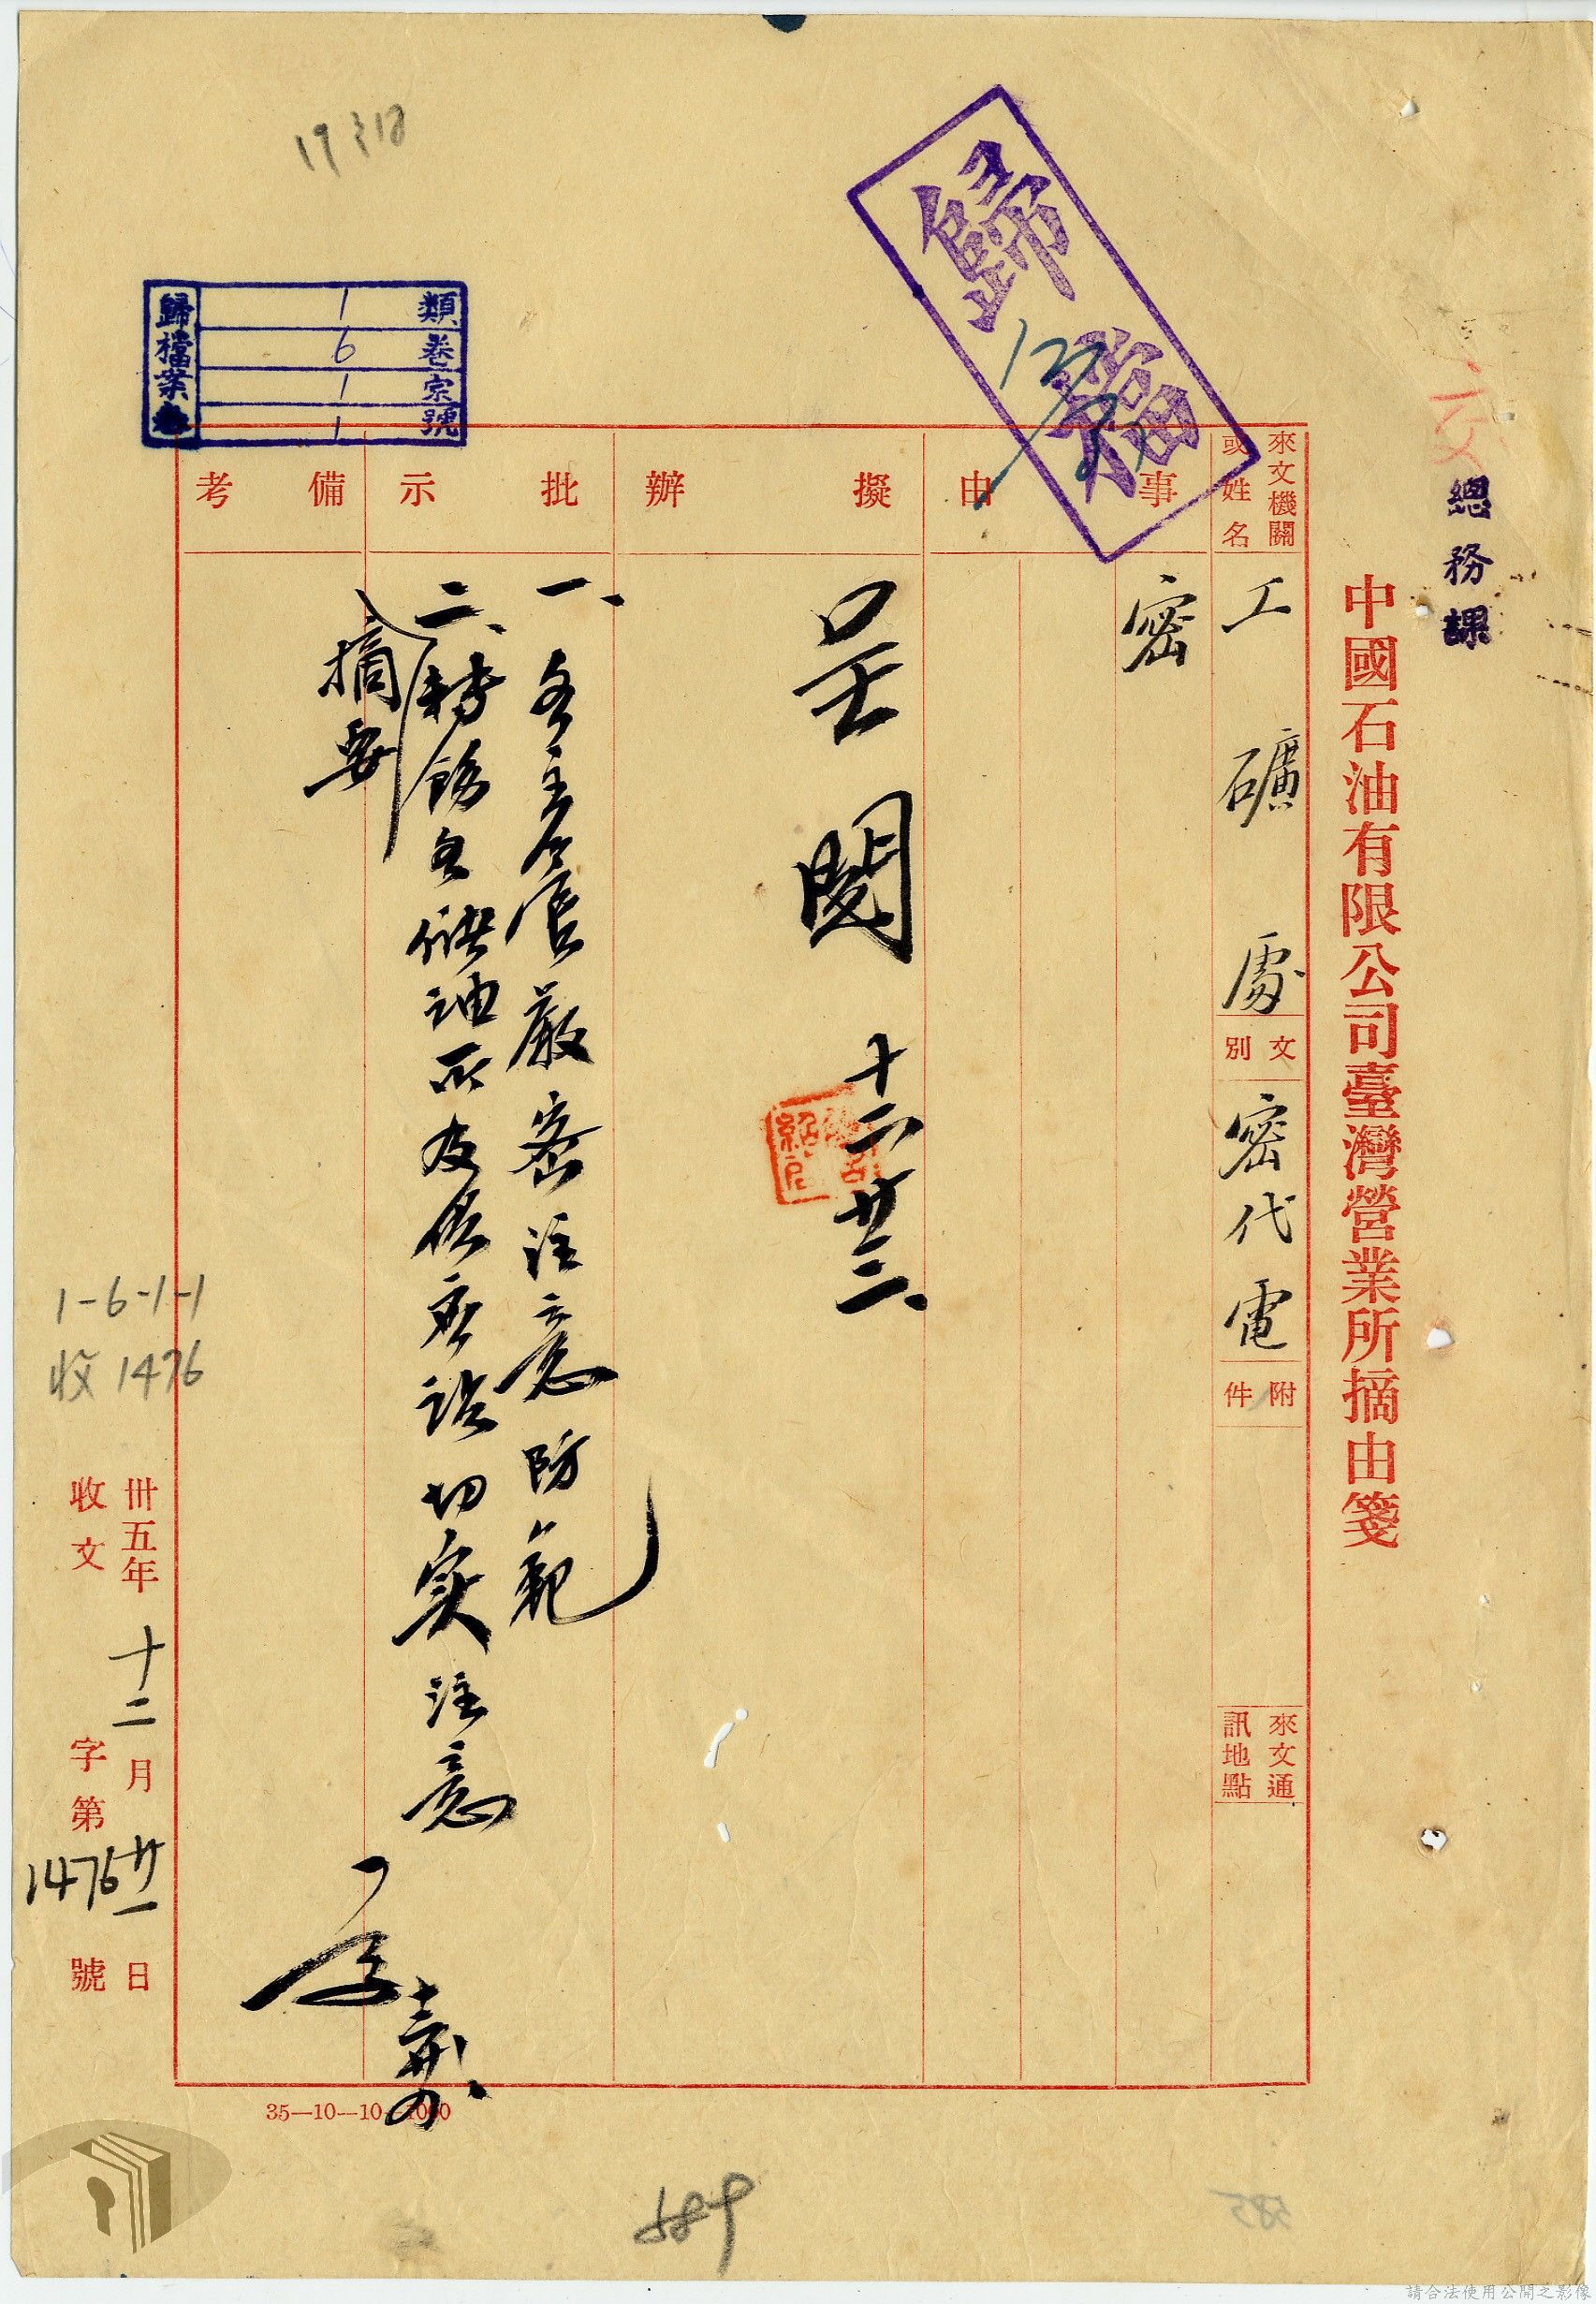 總務課
中國石油有限公司臺灣營業所摘由箋
來文機關或姓名
工礦處
文別
密代電
附件
來文通訊地點
事由
密
歸檔
擬辦
呈閱 十二、廿三、
批示
一、各主管嚴密注意防範
二、轉飭各儲油所及供應站切实注意
備考
摘要
類 1
卷 6
宗 1
號 1
歸檔業
1-6-1-1
收1476
卅五年十二月廿一日
收文 字第1476號
35—10—10—1000
589
585
請合法使用公開之影像